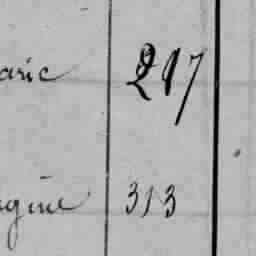 aric 217
gine 313